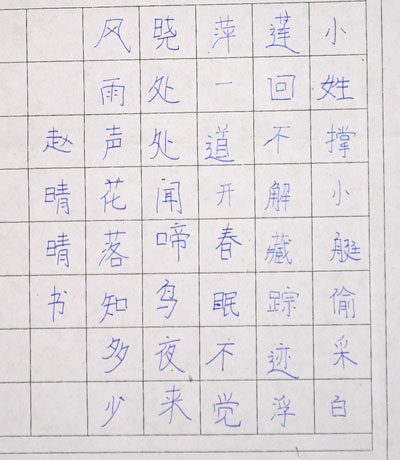 小姓撑小艇偷采白
莲回不解藏踪迹浮
萍一道开春眠不觉
晓处处闻啼鸟夜来
风雨声花落知多少
赵晴晴书